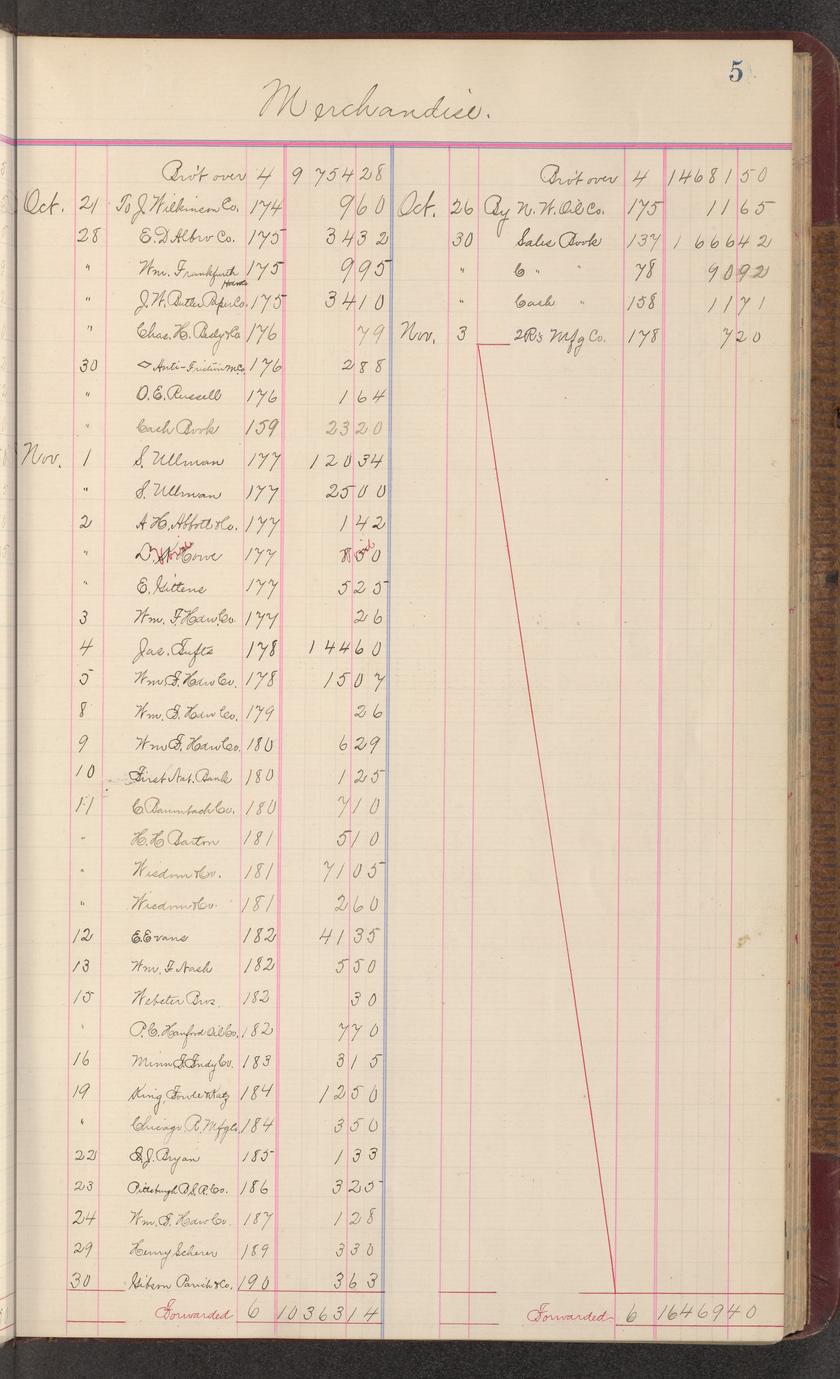 5
Merchandise.
Bro't over 4 9 754 28
Oct. 21 To J. Wilkinson Co. 174 9 60
28 E. D. Albro Co. 175 34 32
" Wm. Frankfurth Hdw Co. 175 9 95
" J. W. Butler Paper Co. 175 34 10
" Chas. H. & Co 176 79
30 Anti-Friction M. Co. 176 2 88
" O. E. Russell 176 1 64
" Cash Book 159 23 20
Nov. 1 S. Ullman 177 120 34
" S. Ullman 177 25 00
2 A. H. Abbott & Co. 177 1 42
" D. Howe 177 8 50
" E. Gittens 177 5 25
3 Wm. F. Hdw. Co. 177 26
4 Jas. Tufts 178 144 60
5 Wm. F. Hdw Co. 178 15 07
8 Wm. F. Hdw Co. 179 26
9 Wm F. Hdw Co. 180 6 29
10 First Nat. Bank 180 1 25
11 C Baumbach Co. 180 7 10
" H. H. Barton 181 5 10
" Wisdom & Co. 181 71 05
" Wisdom & Co. 181 2 60
12 E. Evans 182 41 35
13 Wm. F. Nash 182 5 50
15 Webster Bros. 182 30
" P. C. Hanford Oil Co. 182 7 70
16 Minn. Co. 183 3 15
19 King, & Katz 184 12 50
" Chicago R. Mfg Co. 184 3 50
22 J. Bryan 185 1 33
23 Pittsburgh Co. 186 3 25
24 Wm. F. Hdw Co. 187 1 28
29 Henry Scherer 189 3 30
30 Gibson Parish & Co. 190 3 63
Forwarded 6 10 363 14
Bro't over 4 14 681 50
Oct. 26 By N. W. Oil Co. 175 11 65
30 Sales Book 137 1 666 42
" C " " 78 90 92
" Cash " 158 11 71
Nov. 3 2 R's Mfg Co. 178 7 20
Forwarded 6 16 469 40